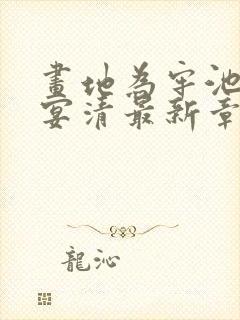 畫地為牢池
宴清最新章
龍沁